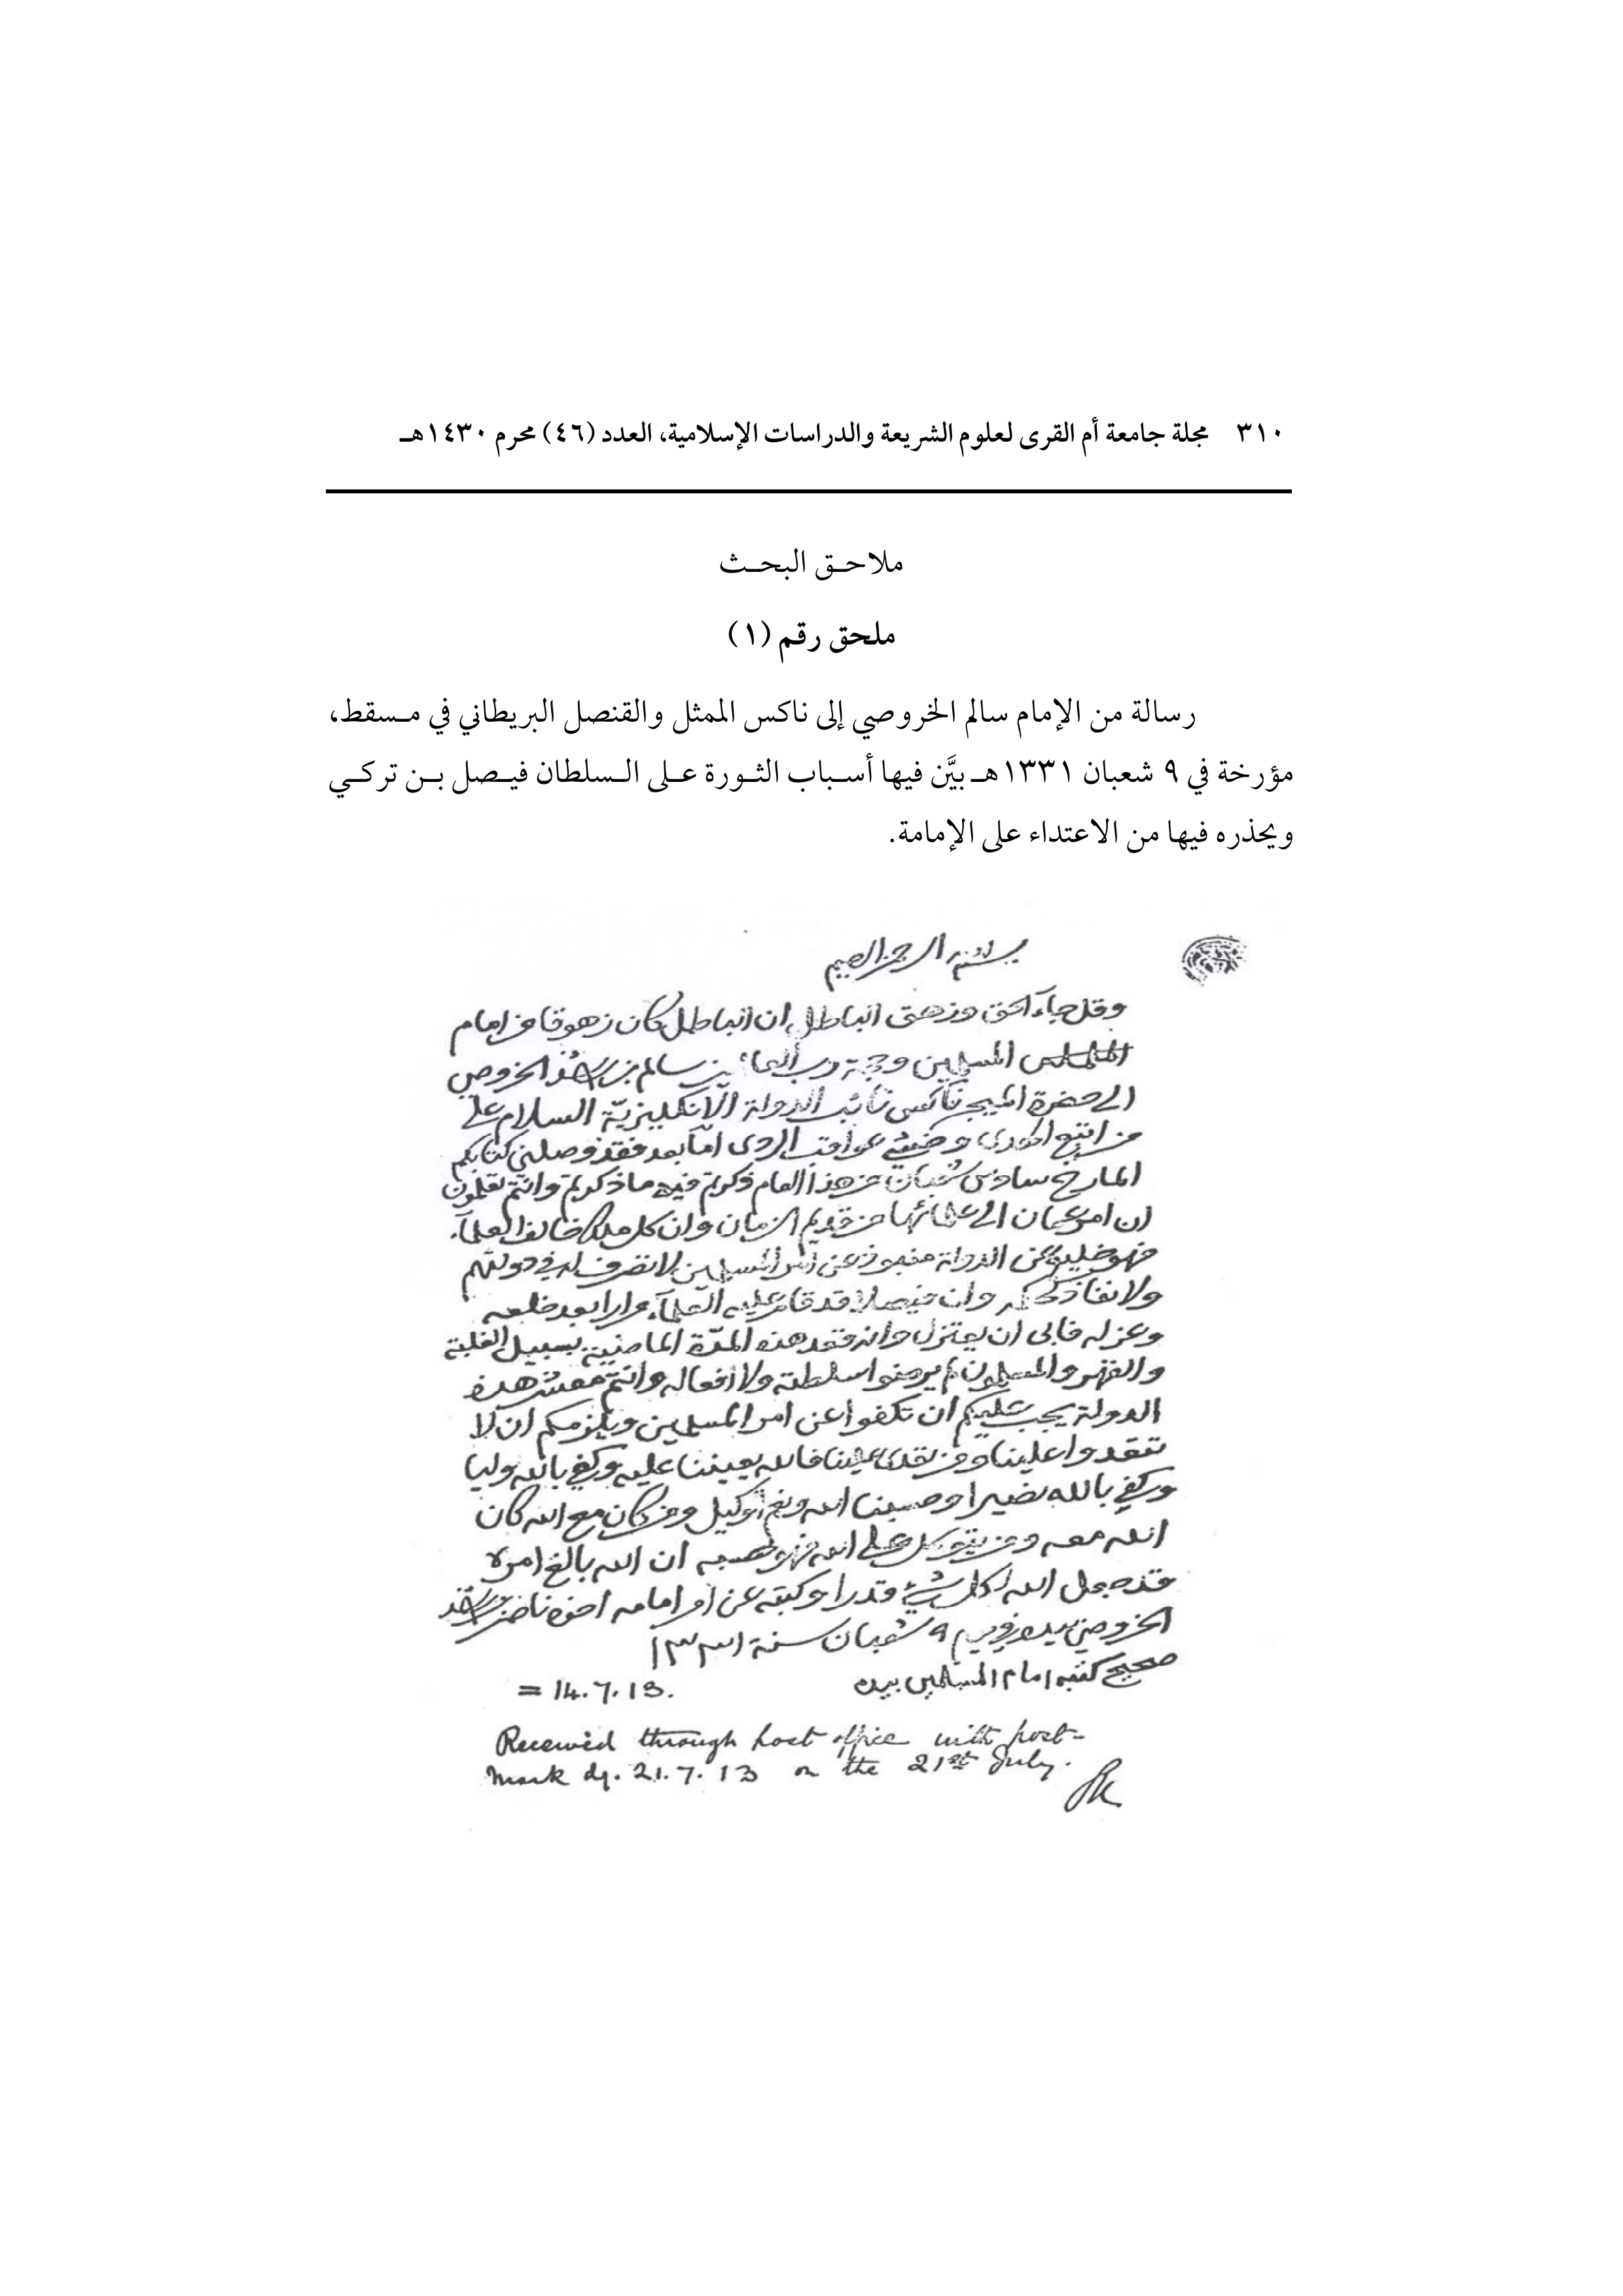 ٣١٠ مجلة جامعة أم القرى لعلوم الشريعة والدراسات الإسلامية، العدد (٤٦) محرم ١٤٣٠هـ
ملاحـق البحـث
ملحق رقم (١)
رسالة من الإمام سالم الخروصي إلى ناكس الممثل والقنصل البريطاني في مـسقط،
مؤرخة في ٩ شعبان ١٣٣١هـ بيَّن فيها أسـباب الثـورة عـلى الـسلطان فيـصل بـن تركـي
ويحذره فيها من الاعتداء على الإمامة.
بسم الله الرحمن الرحيم
وقل جاء الحق وزهق الباطل ان الباطل كان زهوقا من امام
المسلمين وحجة رب العالمين سالم بن راشد الخروصي
الى حضرة الميجر ناكس نائب الدولة الانكليزيّة السلام على
من اتبع الهدى وخشي عواقب الردى امّا بعد فقد وصلني كتابكم
المارخ سادس شعبان من هذا العام ذكرتم فيه ما ذكرتم وانتم تعلمون
ان امر عمان الى علمائها من قديم الزمان وان كل ملك خالف العلمآء
فهو خليع عن الدولة منبوذ عن امر المسلمين لا تصرف له في دولتهم
ولا نفاذ لحكمه وان فيصلا قد قام عليه العلمآء مرارا بعد خلعه
وعزله فابى ان يعتزل وانه قعد هذه المدّة الماضية بسبيل الغلبة
والقهر والمسلمون لم يرضوا سلطته ولا افعاله وانتم معشر هذه
الدولة يجب عليكم ان تكفوا عن امر المسلمين ويلزمكم ان لا
تتعدوا علينا ومن تعدى علينا فالله يعيننا عليه وكفى بالله وليا
وكفى بالله نصيرا وحسبنا الله ونعم الوكيل ومن كان مع الله كان
الله معه ومن يتوكل على الله فهو حسبه ان الله بالغ امره
قد جعل الله لكل شيء قدرا وكتبه عن امر امامه اخوه ناصر بن راشد
الخروصي بيده في يوم ٩ شعبان سنة ١٣٣١
صحيح كتبه امام المسلمين بيده
= 14.7.13.
Received through post office with post-
mark dy. 21.7.13 on the 21st July.